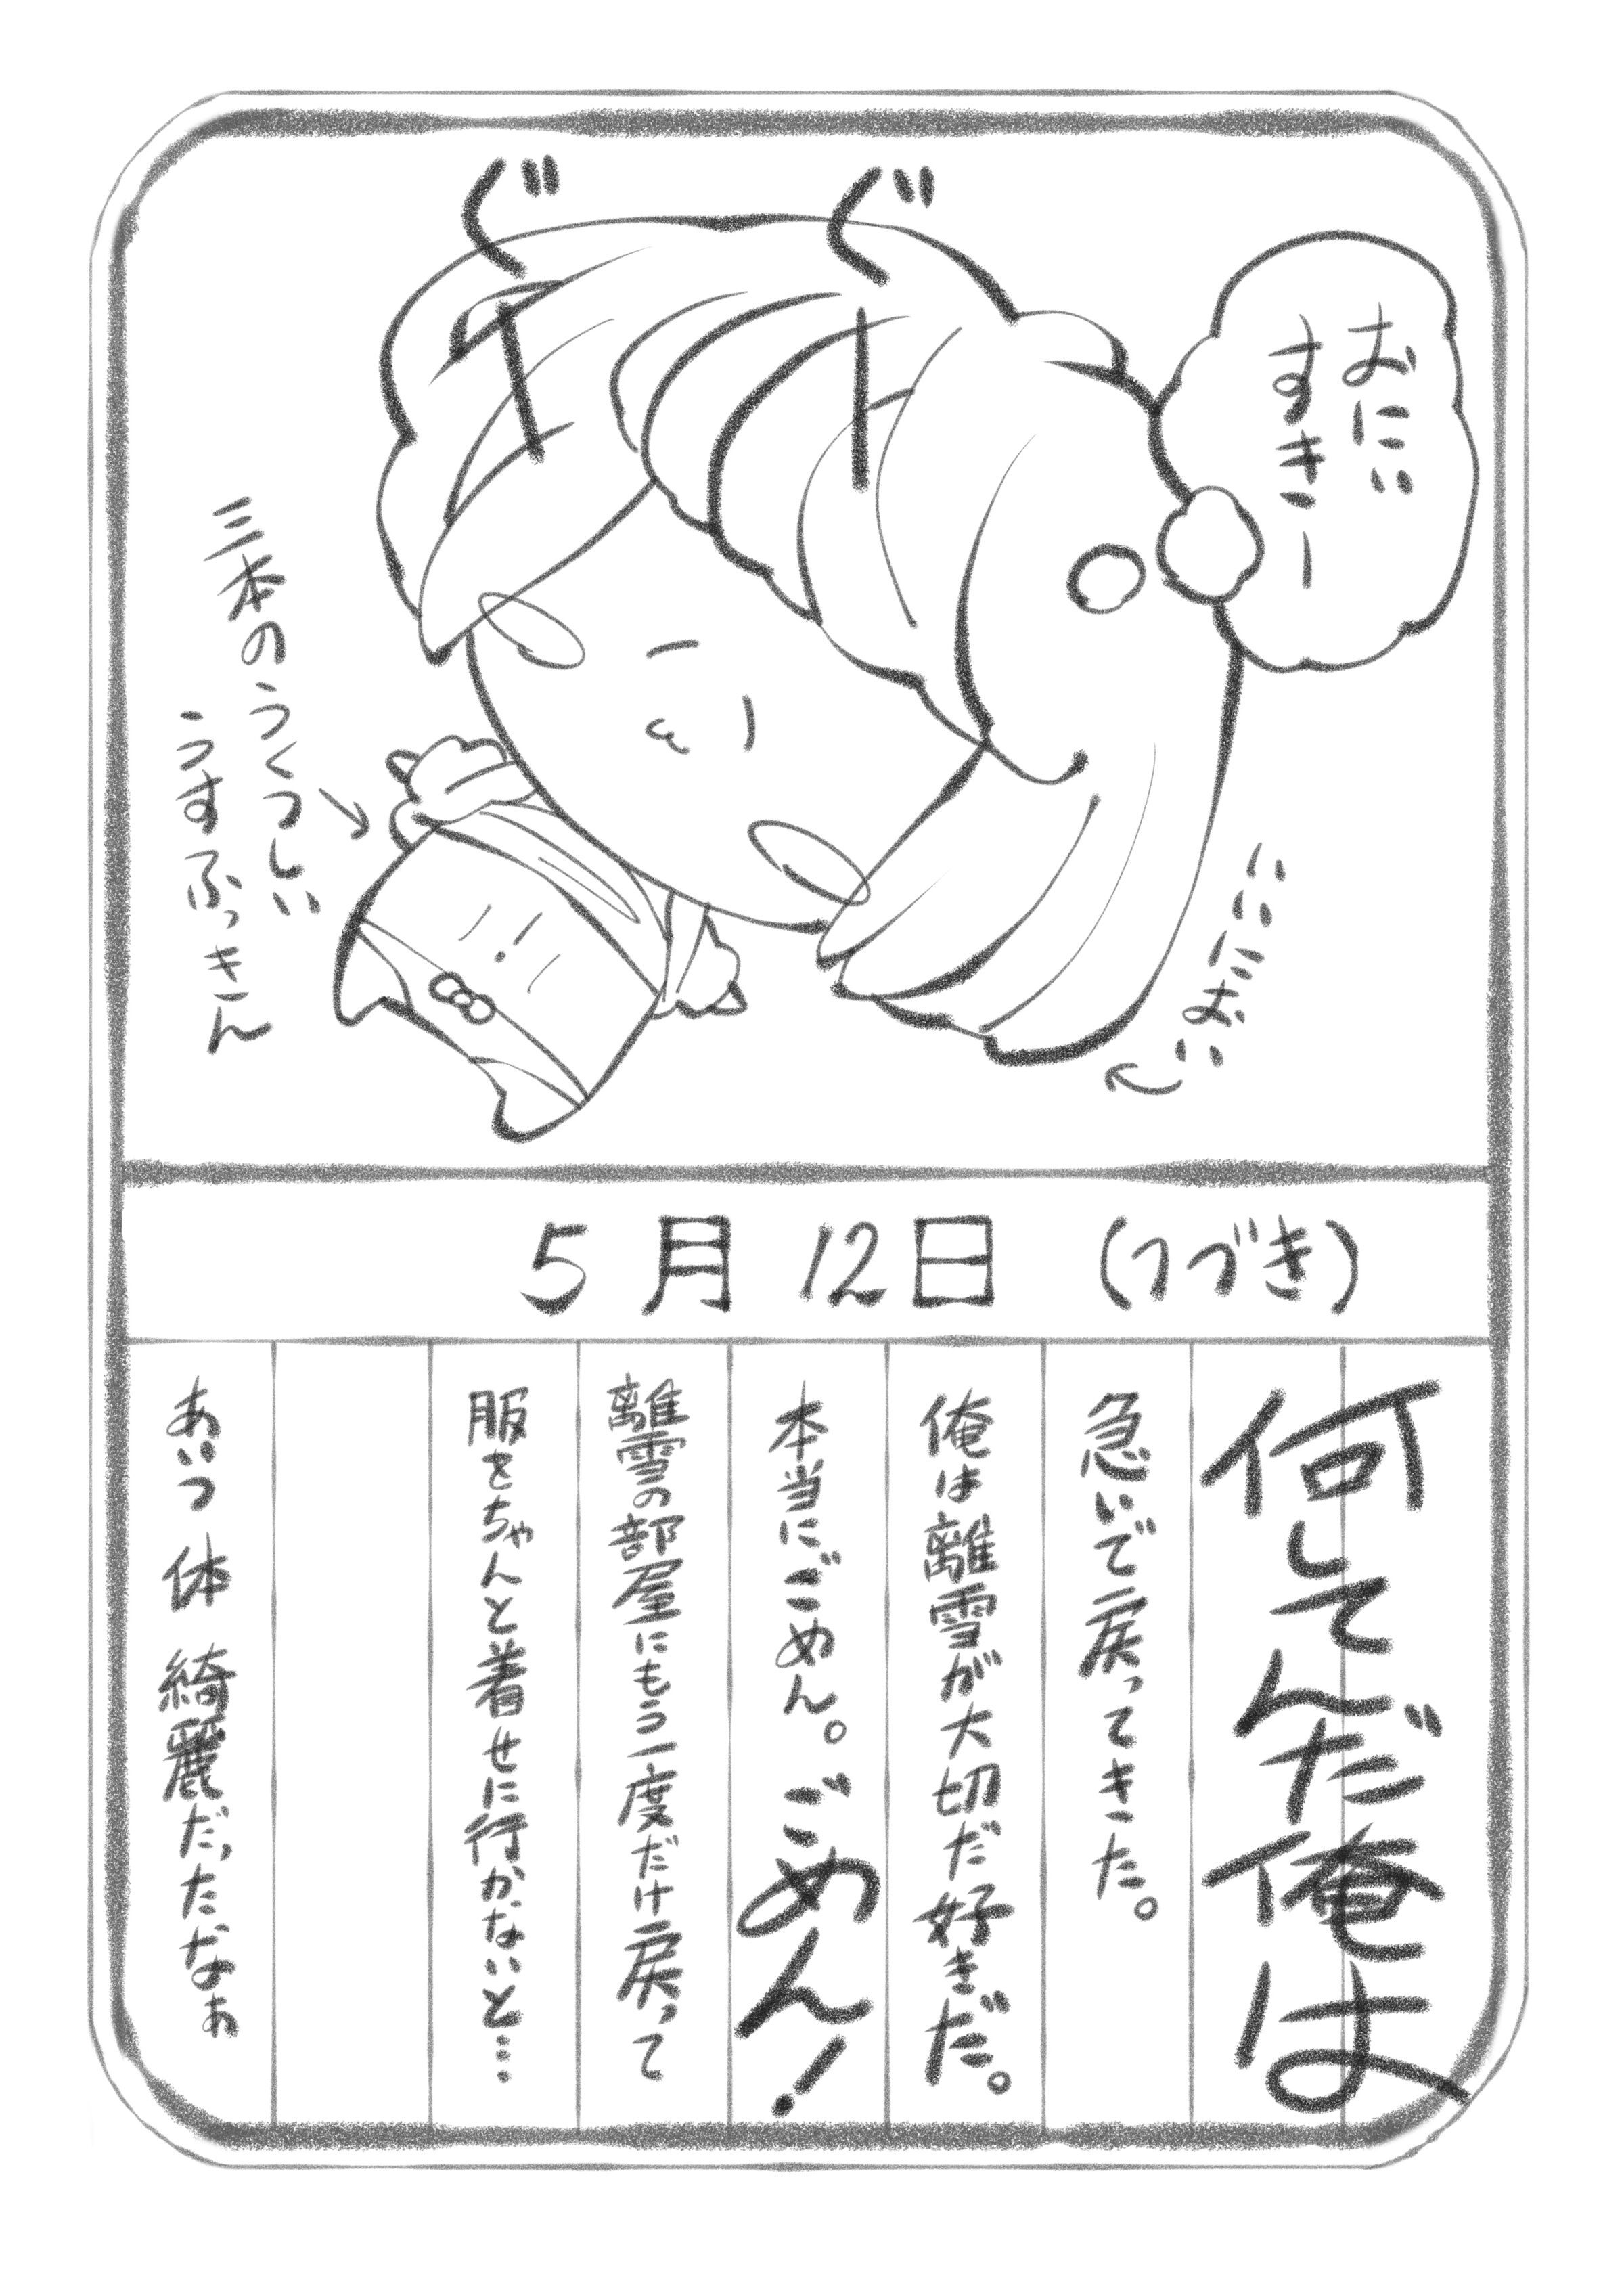 おにい
すきー
ぐー
ぐー
いいにおい
三本のうくつしい
うすふっきん
5月12日 (つづき)
何してんだ俺は
急いで戻ってきた。
俺は離雪が大切だ好きだ。
本当にごめん。ごめん!
離雪の部屋にもう一度だけ戻って
服をちゃんと着せに行かないと…
あいつ 体 綺麗だったなぁ